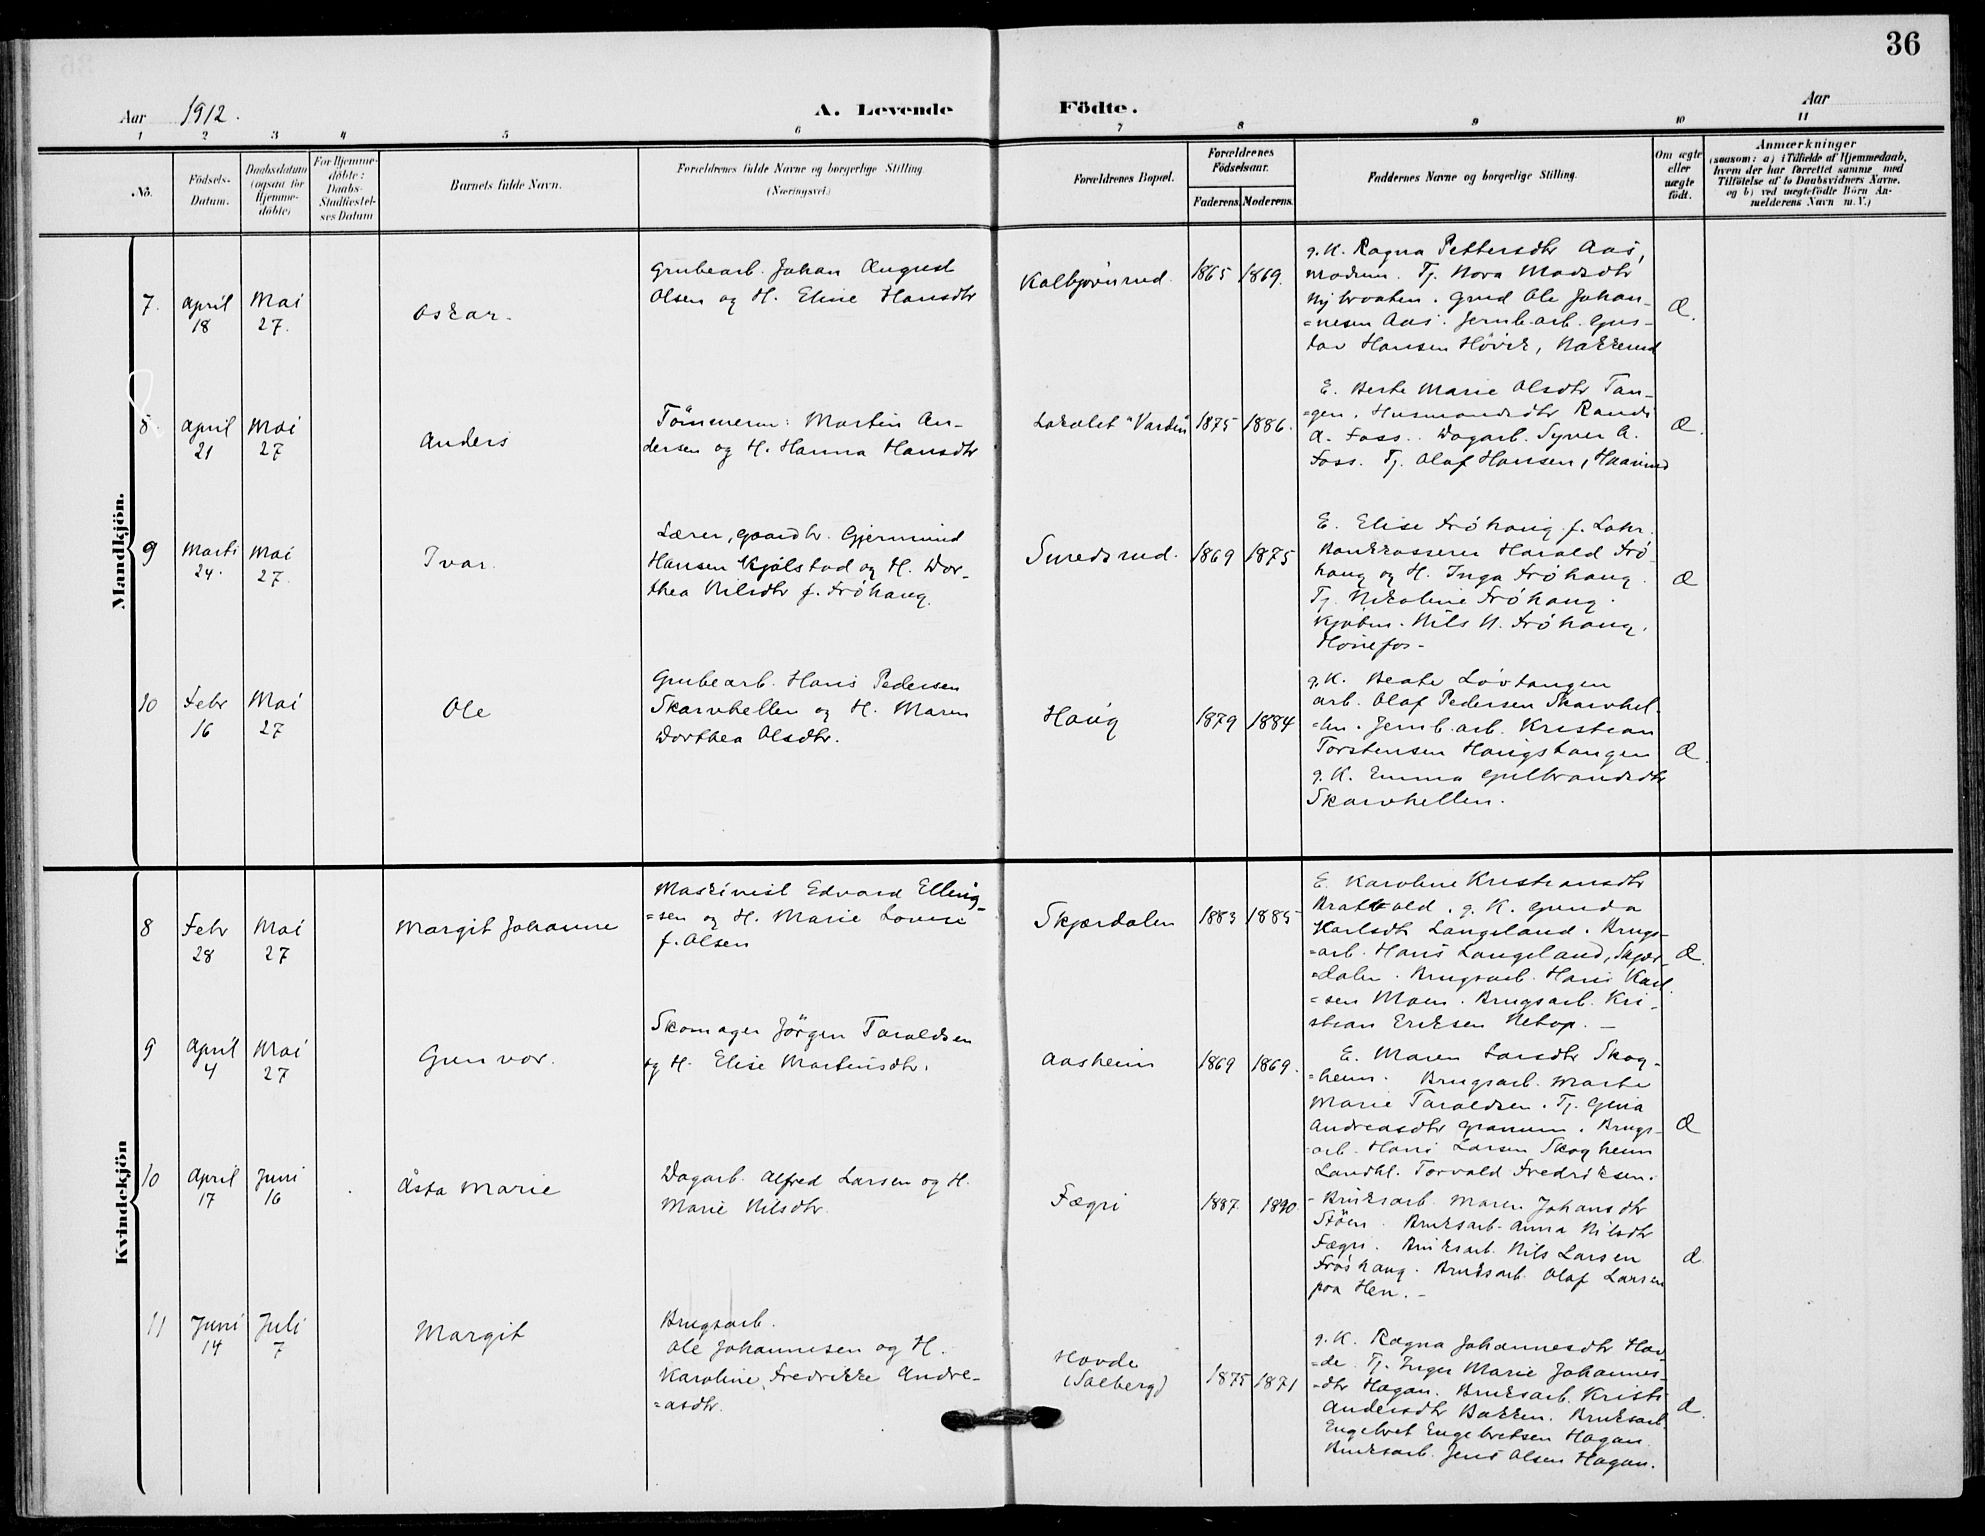 36
Aar 1912.
A. Levende Födte.
Aar
1 2 3 4 5 6 7 8 9 10 11
No.
Födsels-
Datum.
Daabsdatum
(ogsaa for
Hjemme-
döbte)
For Hjemme-
döbte:
Daabs-
Stadfæstel-
ses Datum
Barnets fulde Navn.
Forældrenes fulde Navne og borgerlige Stilling
(Næringsvei.)
Forældrenes Bopæl.
Forældrenes
Födselsaar.
Faderens. Moderens.
Faddernes Navne og borgerlige Stilling.
Om ægte
eller
uægte
födt.
Anmærkninger
(saasom: a) i Tilfælde af Hjemmedaab,
hvem der har forrettet samme med
Tilföielse af to Daabsvidners Navne,
og b) ved uægtefödte Börn An-
melderens Navn m. V.)
Mandkjön.
7.
April
18
Mai
27.
Oskar.
Grubearb. Johan August
Olsen og H. Eline Hansdtr
Kalbjørnrud.
1865
1869.
g. K. Ragna Pettersdtr Aas,
Modum. Tj. Nora Madsdtr
Nybraaten. Gmd Ole Johan-
=nesen Aas. Jernb.arb. Gus-
tav Hansen Høvik, Bakkerud
Æ.
8.
April
21
Mai
27
Anders
Tømmerm: Martin An-
dersen og H. Hanna Hansdtr
Lokalet "Varden"
1875
1886.
E. Berte Marie Olsdtr Tan-
=gen. Husmandsdtr Randi
A. Foss. Dagarb. Syver A.
Foss. Tj. Olaf Hansen, Haarud
Æ.
9
Marts
24.
Mai
27.
Ivar.
Lærer, gaardbr. Gjermund
Hansen Kjølstad og H. Dor-
thea Nilsdtr f. Frøhaug.
Smedsrud.
1869
1875
E. Elise Frøhaug f. Lohr.
Bankkasserer Harald Frø
haug og H. Inga Frøhaug.
Tj. Nikoline Frøhaug.
Kjøbm. Nils N. Frøhaug,
Hønefos.
Æ
10
Febr
16
Mai
27
Ole
Grubearb. Hans Pedersen
Skarvhellen og H. Maren
Dorthea Olsdtr.
Haug
1879
1884
g. K. Beate Løvtangen
arb. Olaf Pedersen Skarvhel-
=len. Jernb.arb. Kristian
Torstensen Haugstangen
g. K. Emma Gulbrandsdtr
Skarvhellen.
Æ.
Kvindekjön
8
Febr
28
Mai
27
Margit Johanne
Maskinist Edvard Elling-
=sen og H. Marie Lovise
f. Olsen
Skjærdalen
1883
1885
E. Karoline Kristiansdtr
Brattvold. g. K. Gunda
Karlsdtr Langeland. Brugs-
=arb. Hans Langeland, Skjær-
=dalen. Brugsarb. Hans Karl-
=sen Moen. Brugsarb. Kri-
stian Eriksen Retop. —
Æ.
9
April
4
Mai
27
Gunvor.
Skomager Jørgen Taraldsen
og H. Elise Martinsdtr.
Aasheim
1869
1869.
E. Maren Larsdtr Skog-
=heim. Brugsarb. Marte
Marie Taraldsen. Tj. Gina
Andreasdtr Granum. Brugs-
arb. Hans Larsen Skogheim
Landhl. Torvald Fredriksen.
Æ
10
April
17
Juni
16
Åsta Marie
Dagarb. Alfred Larsen og H.
Marie Nilsdtr.
Fægri
1887.
1890.
Bruksarb. Maren Johansdtr
Støen. Bruksarb. Anna Nilsdtr
Fægri. Bruksarb. Nils Larsen
Frøshaug. Bruksarb. Olaf Larsen
paa Hen. —
Æ.
11
Juni
14
Juli
7
Margit
Brugsarb.
Ole Johannesen og H.
Karoline Fredrikke Andre-
=asdtr.
Hovde
(Solberg)
1875
1871
g. K. Ragna Johannesdtr Hov-
=de. Tj. Inger Marie Johannes-
=dtr Hagan. Bruksarb. Kristi
Andersdtr Bakken. Bruksarb.
Engebret Engebretsen Hagan.
Bruksarb. Jens Olsen Hagan.
Æ.